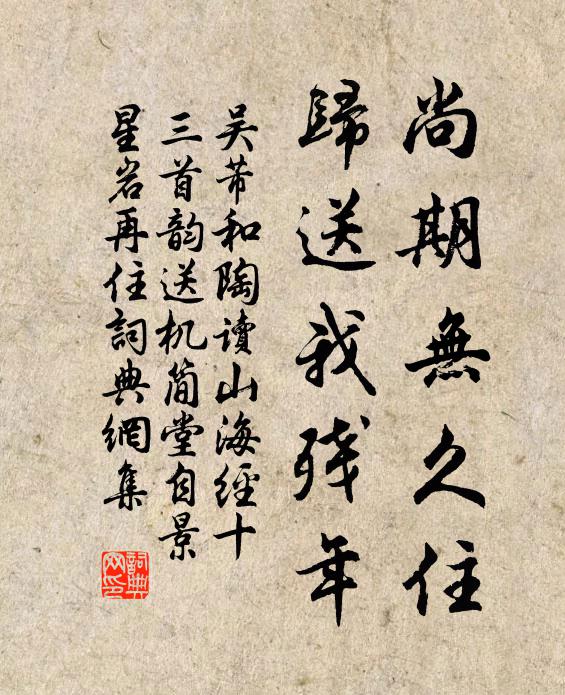 尚期無久住
歸送我殘年
吴芾和陶讀山海經十
三首韵送机简堂自景
星岩再住詞典網集
詞典
网印